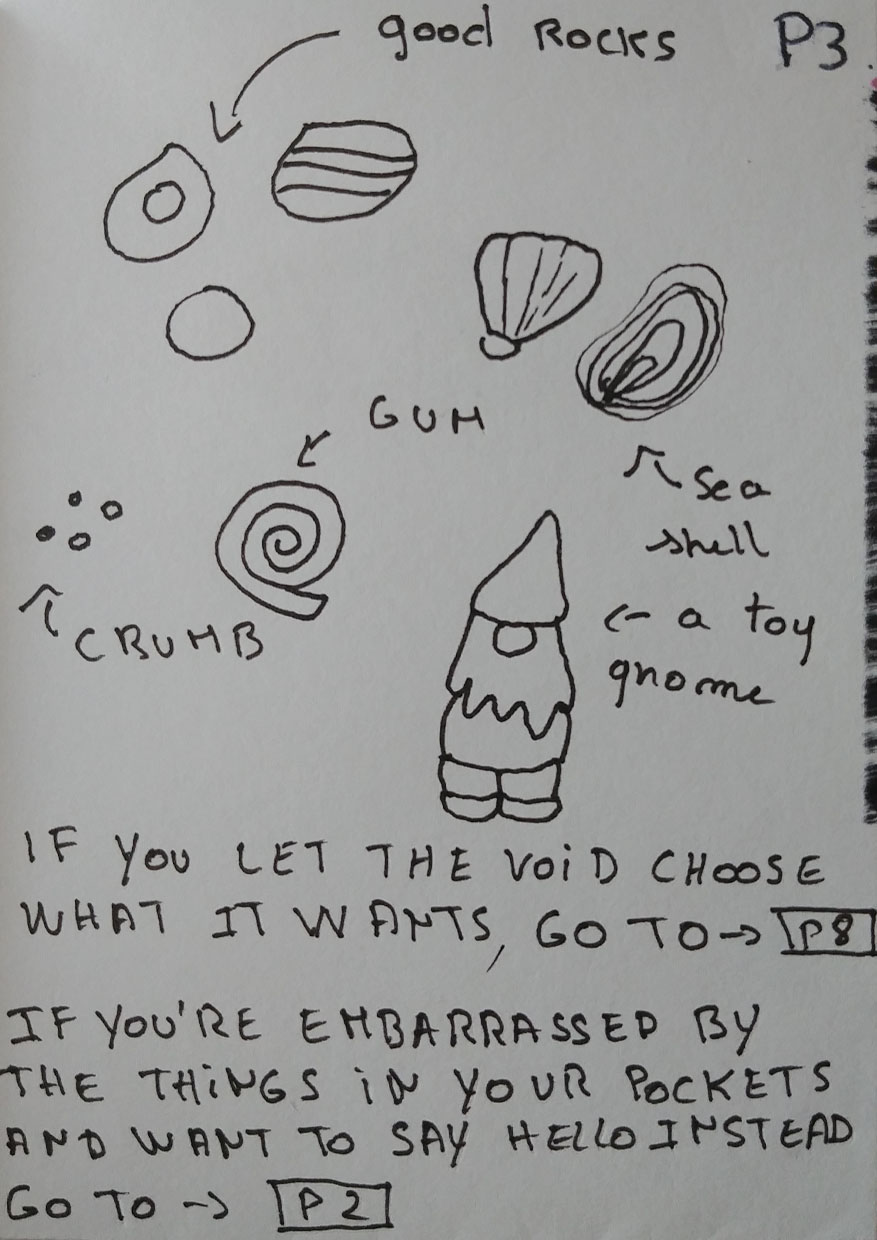 good ROCKS P3
GUM
sea
shell
CRUMB
a toy
gnome
IF YOU LET THE VOiD CHOOSE
WHAT IT WANTS, GO TO → P8
IF YOU'RE EMBARRASSED BY
THE THiNGS iN YOUR POCKETS
AND WANT TO SAY HELLO INSTEAD
GO TO → P2